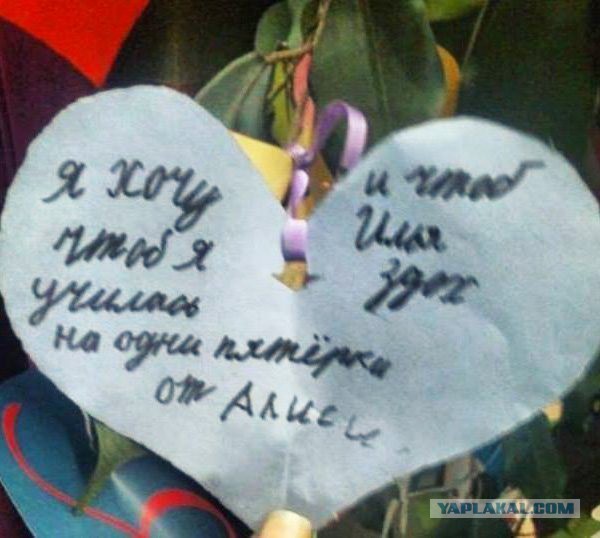 Я хочу
чтоб я
училась
на одни пятёрки
от Алисы.
и чтоб
Илья
здох
YAPLAKAL.COM